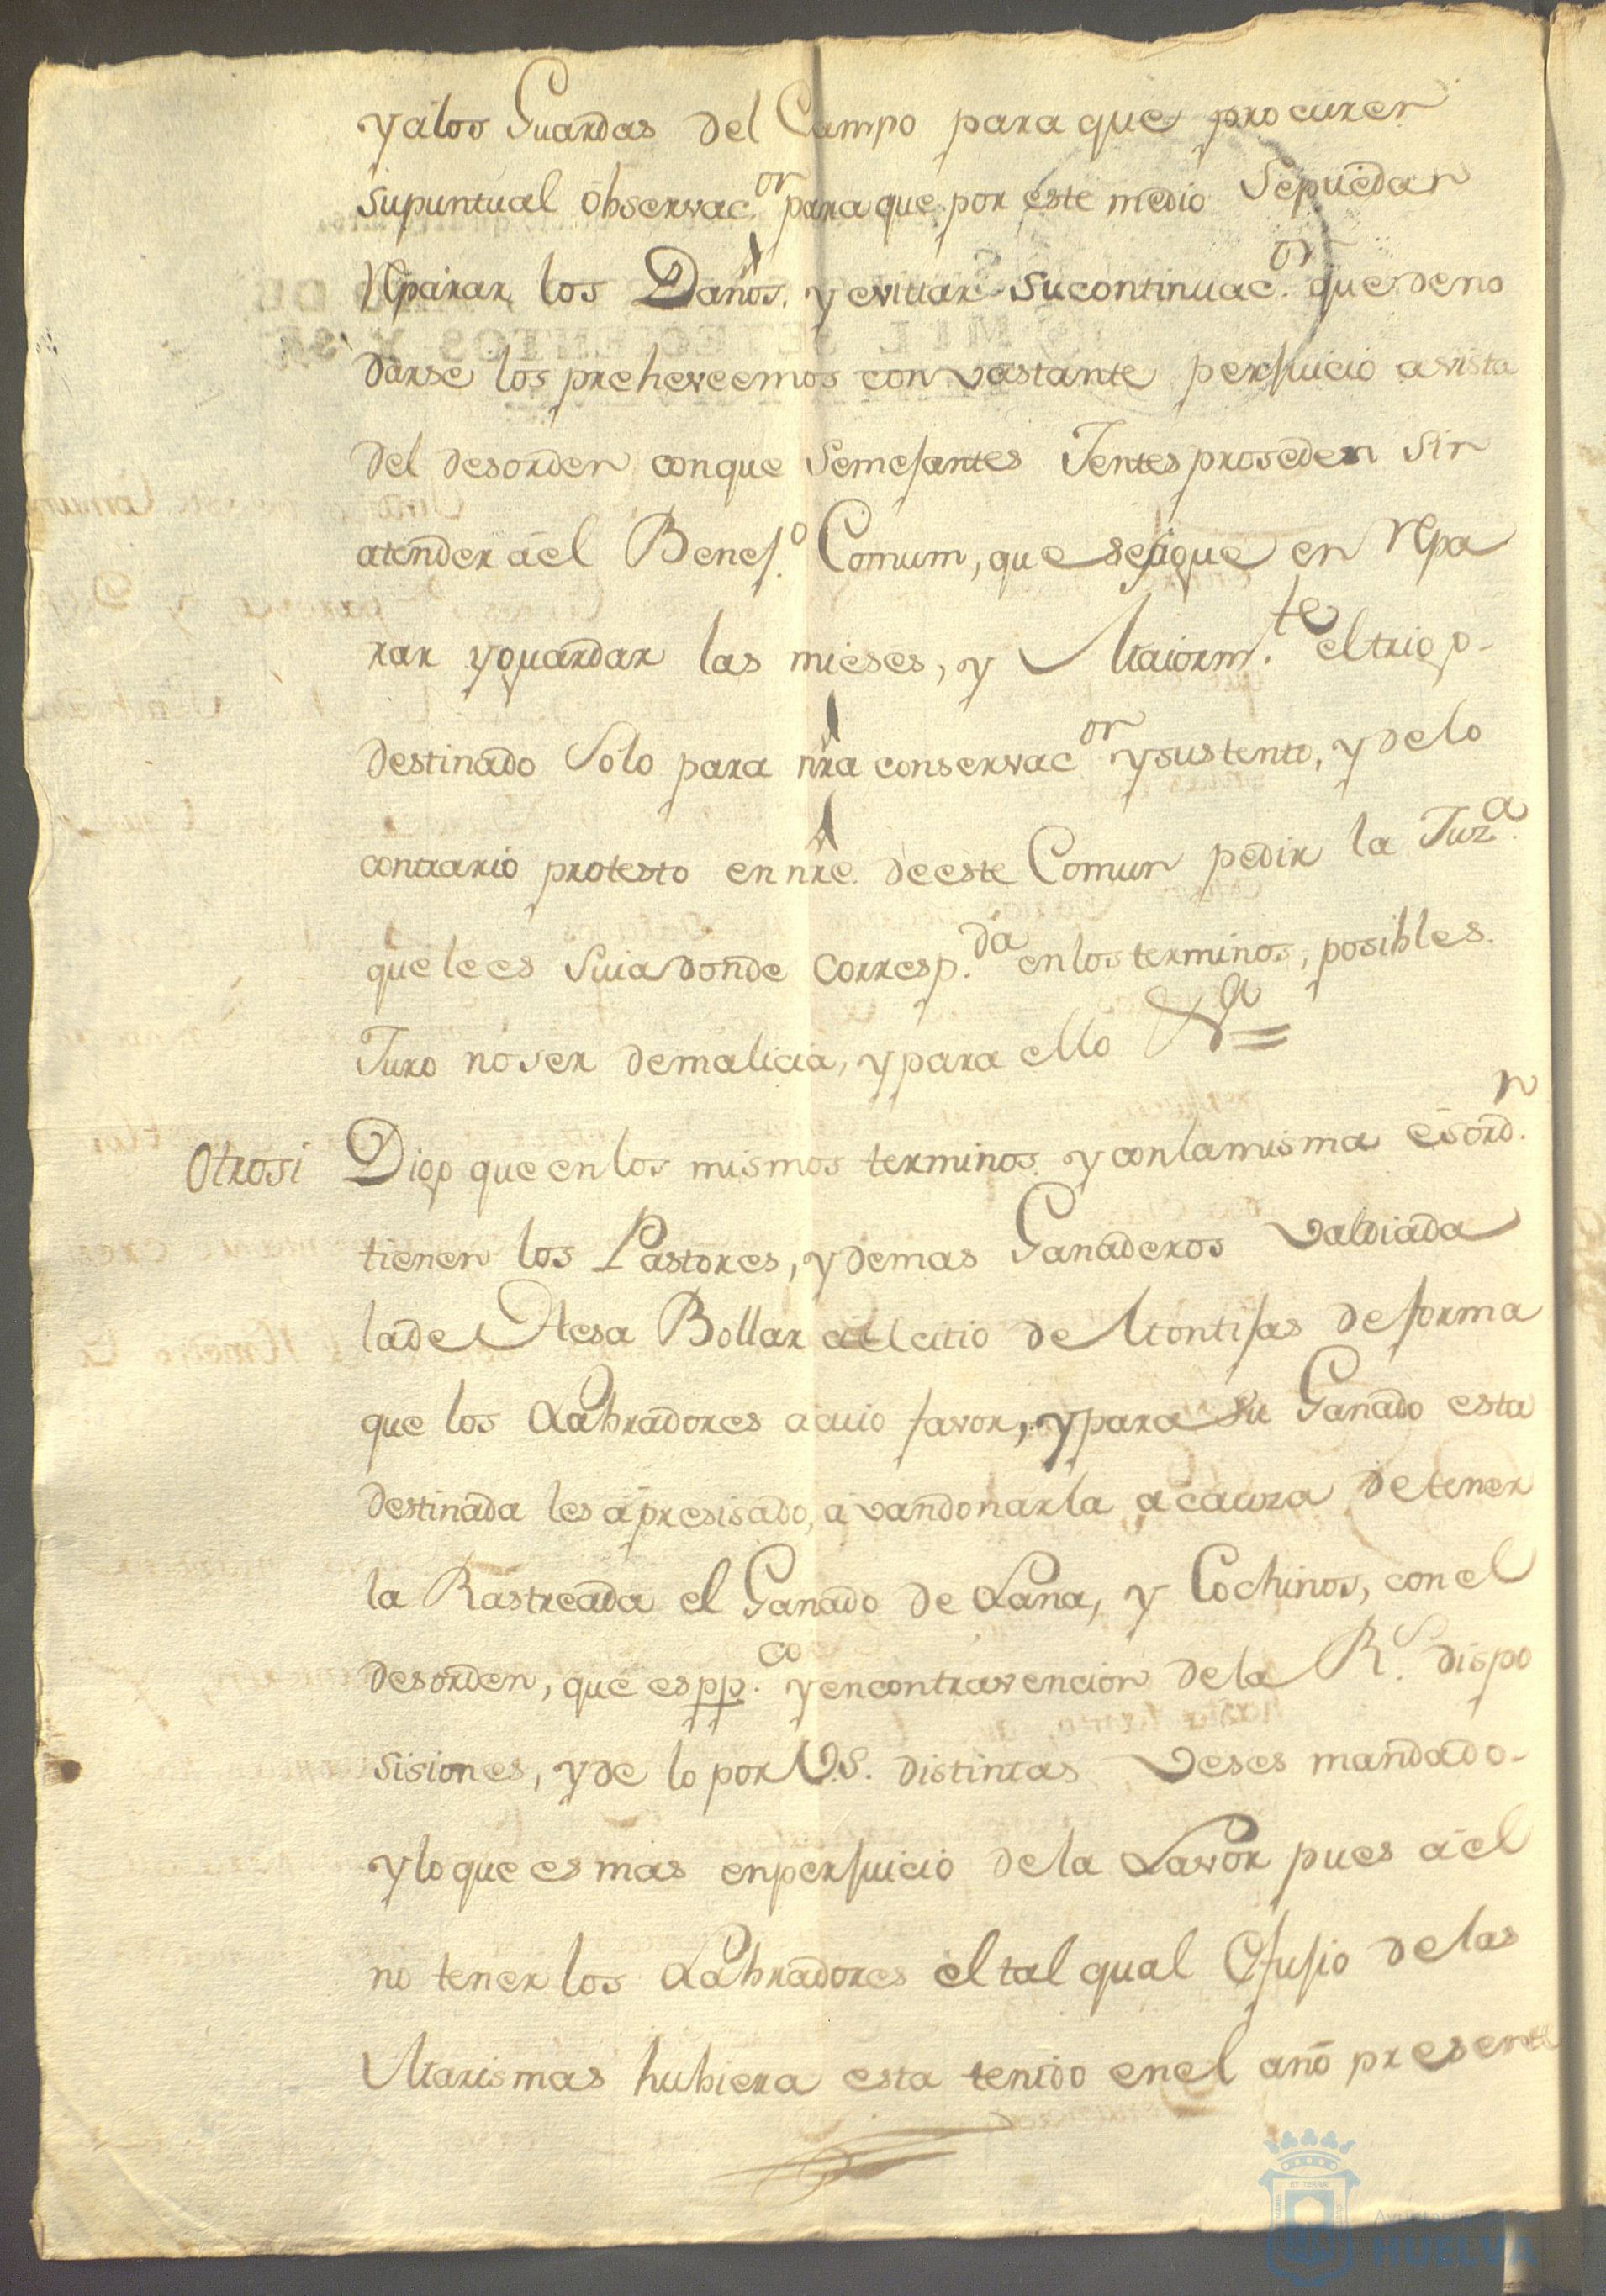 y a los Guardas del Campo para que procuren
su puntual observac.on para que por este medio se puedan
Reparar los Daños. y evittar su continuac.on que de no
darse los preheveemos con vastante perjuicio a vista
del desorden con que semejantes Jentes proseden sin
atender a el Benef.o Comum, que se sigue en Repa
rar y guardar las mieses, y Maiorm.te el trigo
destinado solo para nra conservac.on y sustento, y de lo
contrario protesto en nre. de este Comun pedir la Juz.a
que le es suia donde corresp.da en los terminos, posibles.
Juro no ser de malicia, y para ello &a=
Otrosi Digo que en los mismos terminos. y con la misma esord.n
tienen los Pastores, y demas Ganaderos valdiada
la deesa Bollar a el citio de Montijas de forma
que los Labradores a cuio favor, y para su Ganado esta
destinada les a presisado, a vandonarla a cauza de tener
la Rastreada el Ganado de Lana, y Cochinos, con el
desorden, que es pp.co y en contravencion de la R.s dispo
sisiones, y de lo por V.S. distintas veses mandado-
y lo que es mas en perjuicio de la Lavor pues a el
no tener los Labradores el tal qual Refujio de las
Marismas hubiera esta tenido en el año presente
Ayuntamiento de
HUELVA